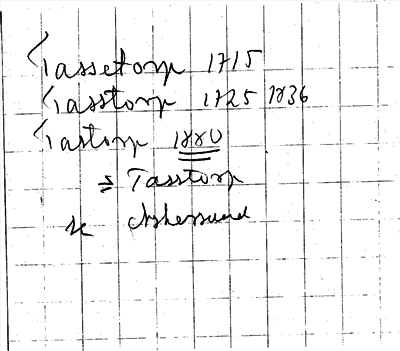 Tassetorp 1715
Tasstorp 1725 1836
Tastorp 1880
= Tasstorp
se Askersund